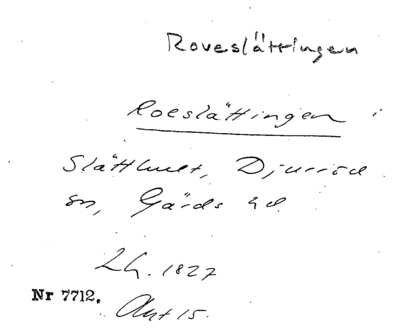 Roveslättingen
Roeslättingen i
Slätthult, Djurröd
sn, Gärds hd.
Lh. 1827
Nr 7712. Akt 15.